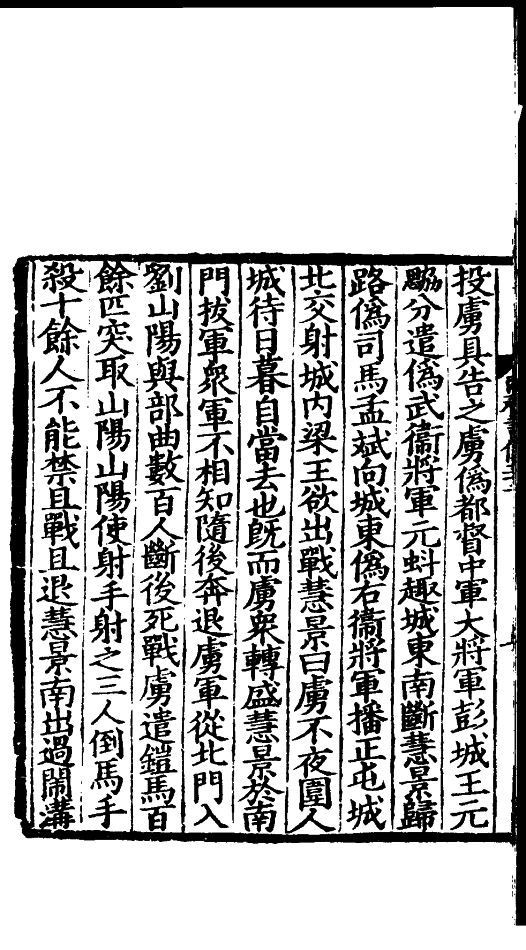 投虜具告之虜僞都督中軍大將軍彭城王元
勰分遣僞武衞將軍元蚪趣城東南斷慧景歸
路僞司馬孟斌向城東僞右衞將軍播正屯城
北交射城内梁王欲出戰慧景曰虜不夜圍人
城待日暮自當去也旣而虜衆轉盛慧景於南
門拔軍衆軍不相知隨後奔退虜軍從北門入
劉山陽與部曲數百人斷後死戰虜遣鎧馬百
餘匹突取山陽山陽使射手射之三人倒馬手
殺十餘人不能禁且戰且退慧景南出過鬧溝